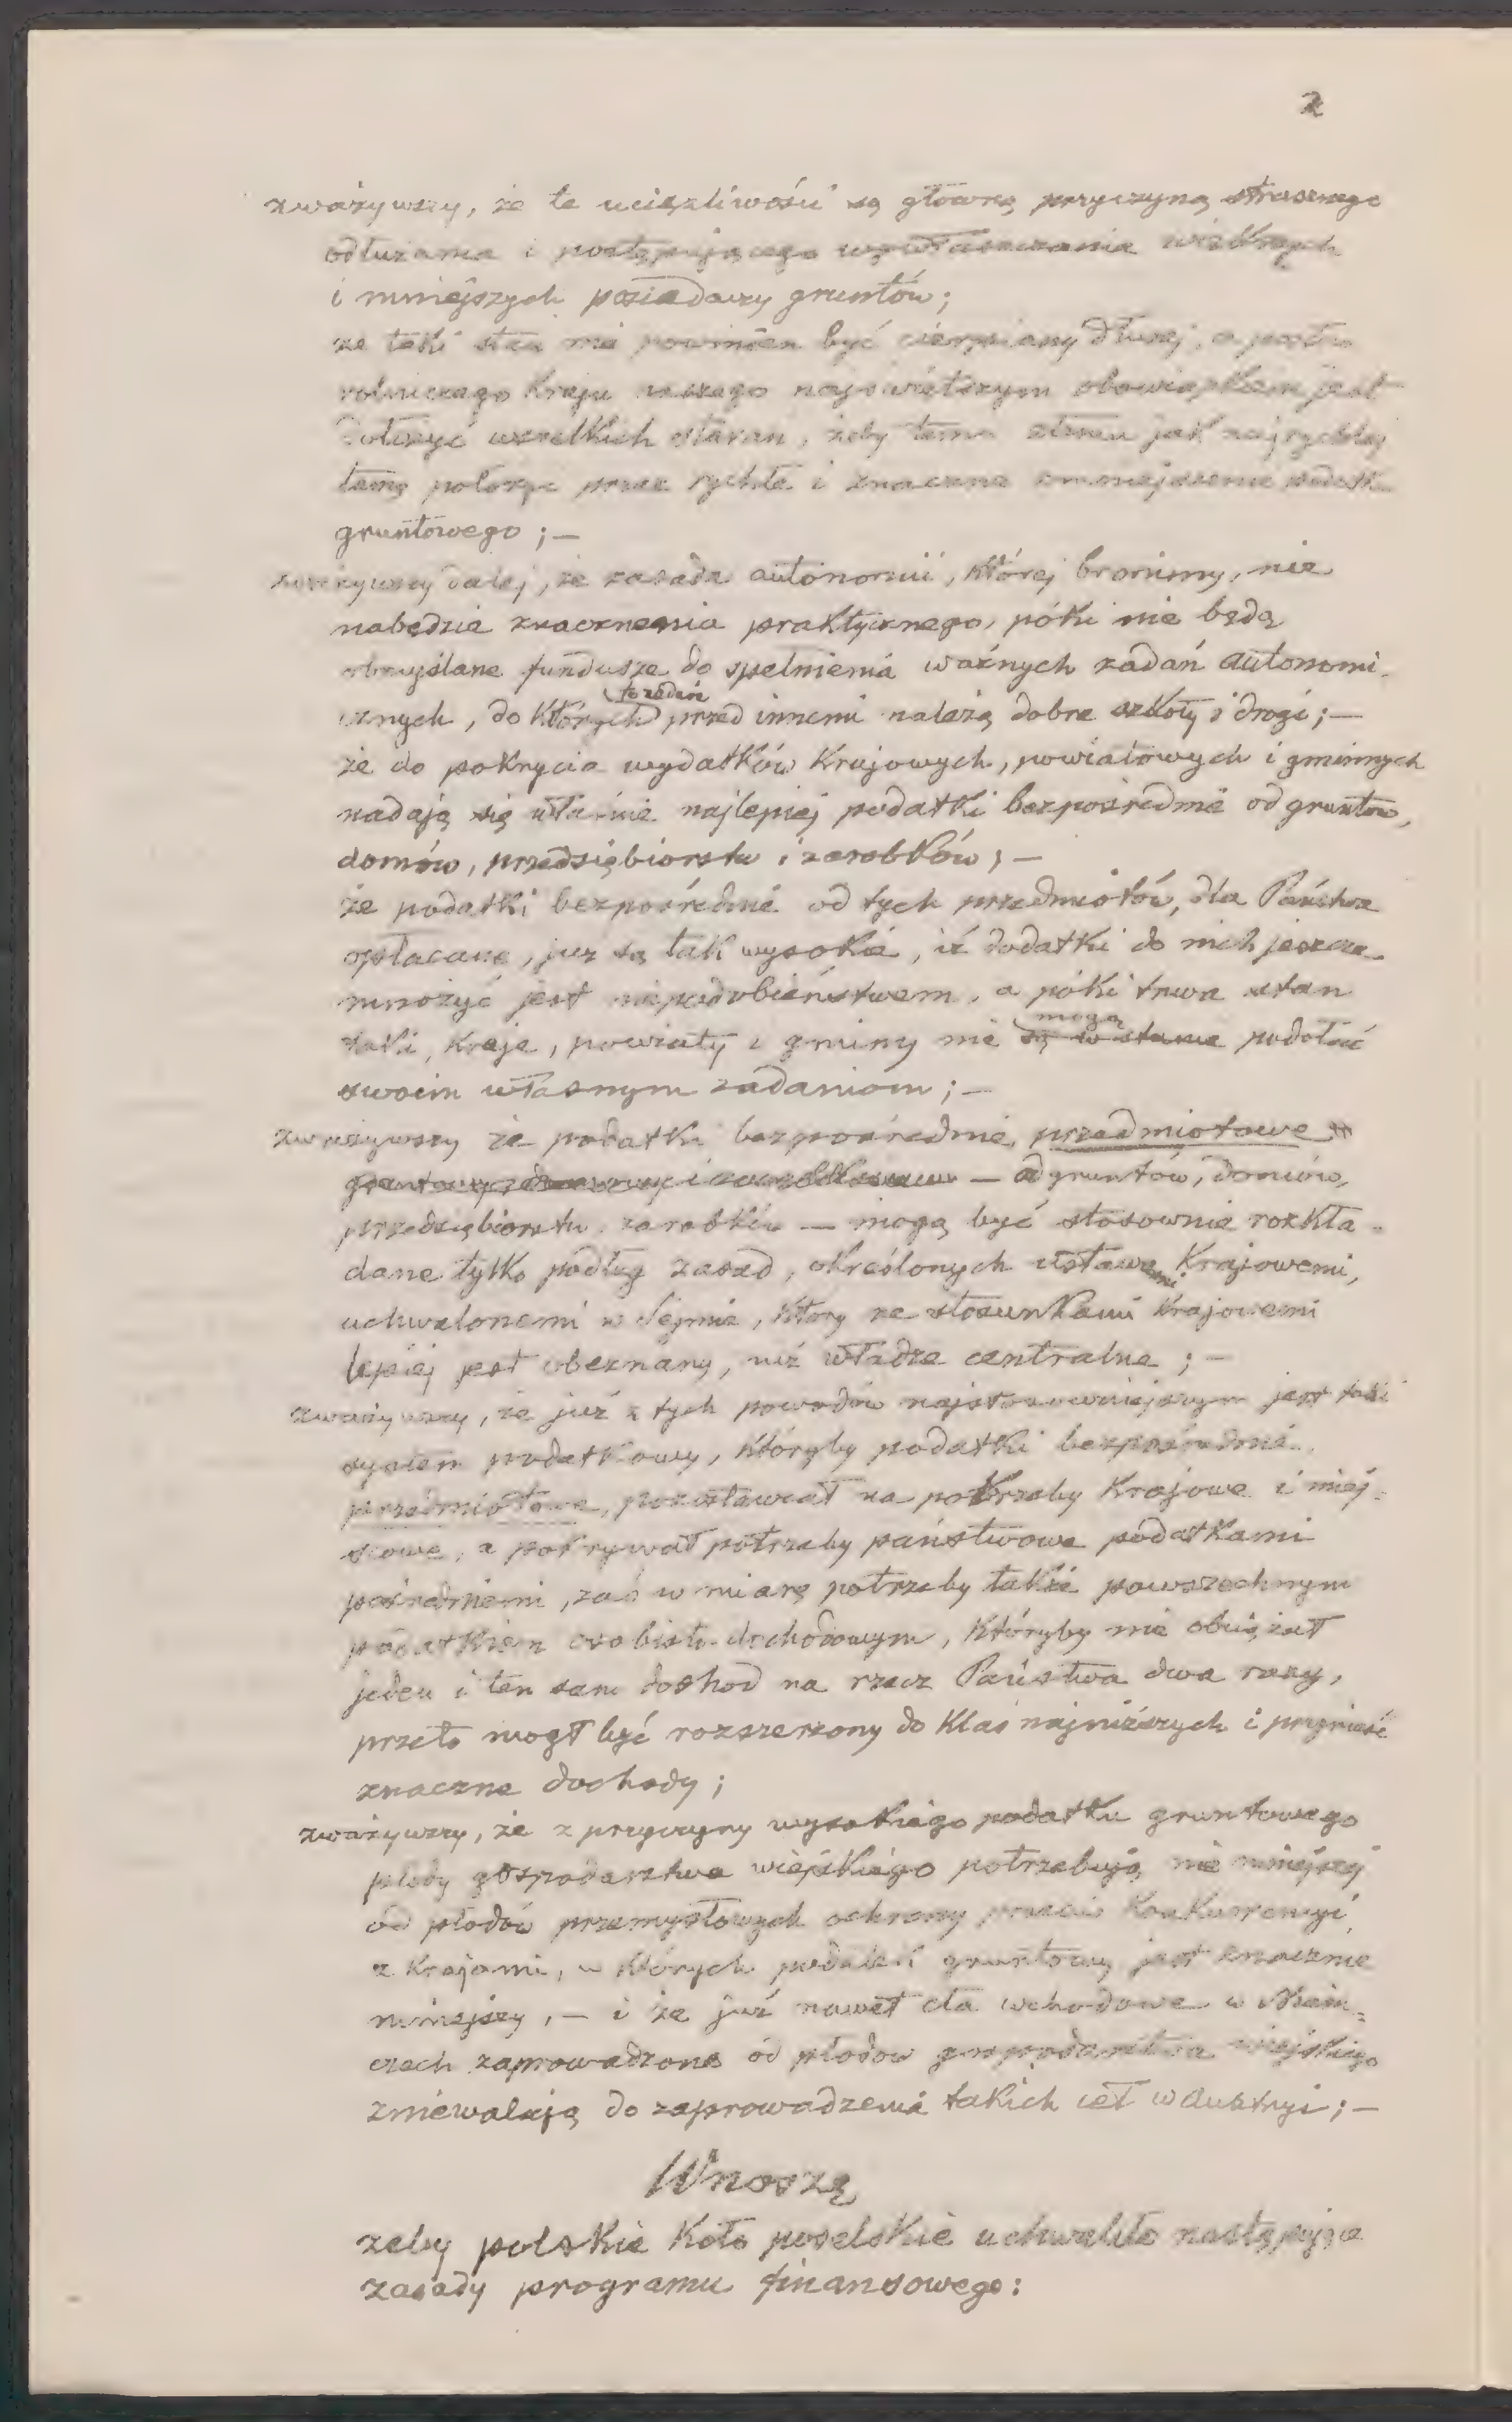 2
zważywszy, że te uciążliwości są główną przyczyną strasznego
odłużania i postępującego wywłaszczania większych
i mniejszych posiadaczy gruntów;
że taki stan nie powinien być cierpiany dłużej, a posłów
rolniczego kraju naszego najświętszym obowiązkiem jest
dołożyć wszelkich starań, żeby temu stanu jak najrychlej
tamę położyć przez rychłe i znaczne zmniejszenie podatku
gruntowego; —
zważywszy dalej, że zasada autonomii, której bronimy, nie
nabędzie znaczenia praktycznego, póki nie będą
obmyślane fundusze do spełnienia ważnych zadań autonomi-
cznych, do których przed innemi należą dobre szkoły i drogi; —
że do pokrycia wydatków Krajowych, powiatowych i gminnych
nadają się właśnie najlepiej podatki bezpośrednie od gruntów,
domów, przedsiębiorstw i zarobków; —
że podatki bezpośrednie od tych przedmiotów, dla Państwa
opłacane, już są tak wysokie, iż dodatki do nich jeszcze
mnożyć jest niepodobieństwem, a póki trwa stan
taki, Kraje, powiaty i gminy nie są w stanie mogą podołać
swoim własnym zadaniom; —
zważywszy że podatki bezpośrednie, przedmiotowe
— od gruntów, domów,
przedsiębiorstw, zarobków — mogą być stosownie rozkła-
dane tylko podług zasad, określonych ustawami Krajowemi,
uchwalonemi w Sejmie, który ze stosunkami Krajowemi
lepiej jest obeznany, niż władze centralne; —
zważywszy, że już z tych powodów najstosowniejszym jest taki
system podatkowy, któryby podatki bezpośrednie
przedmiotowe, pozostawiał na potrzeby Krajowe i miej-
scowe, a pokrywał potrzeby państwowe podatkami
pośredniemi, zaś w miarę potrzeby także powszechnym
podatkiem osobisto-dochodowym, któryby nie obciążał
jeden i ten sam dochod na rzecz Państwa dwa razy,
przeto mogł być rozszerzony do klas najniższych i przynieść
znaczne dochody;
zważywszy, że z przyczyny wysokiego podatku gruntowego
płody gospodarstwa wiejskiego potrzebują nie mniejszej
od płodów przemysłowych ochrony przeciw Konkurencyi
z Krajami, w których podatek gruntowy jest znacznie
mniejszy, — i że już nawet cła wchodowe w Niem-
czech zaprowadzone od płodów gospodarstwa wiejskiego
zniewalają do zaprowadzenia takich ceł w Austryi; —
Wnoszę
żeby polskie Koło poselskie uchwaliło następujące
zasady programu finansowego: